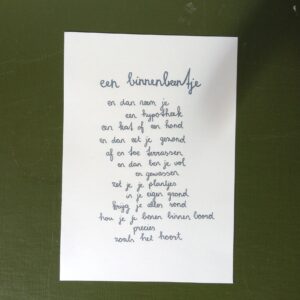 een binnenbeentje
en dan neem je
een hypotheek
een kat of een hond
en dan eet je gezond
af en toe terrassen
en dan ben je vol
en gewassen
zet je je plantjes
in je eigen grond
krijg je alles rond
hou je je benen binnen boord
precies
zoals het hoort